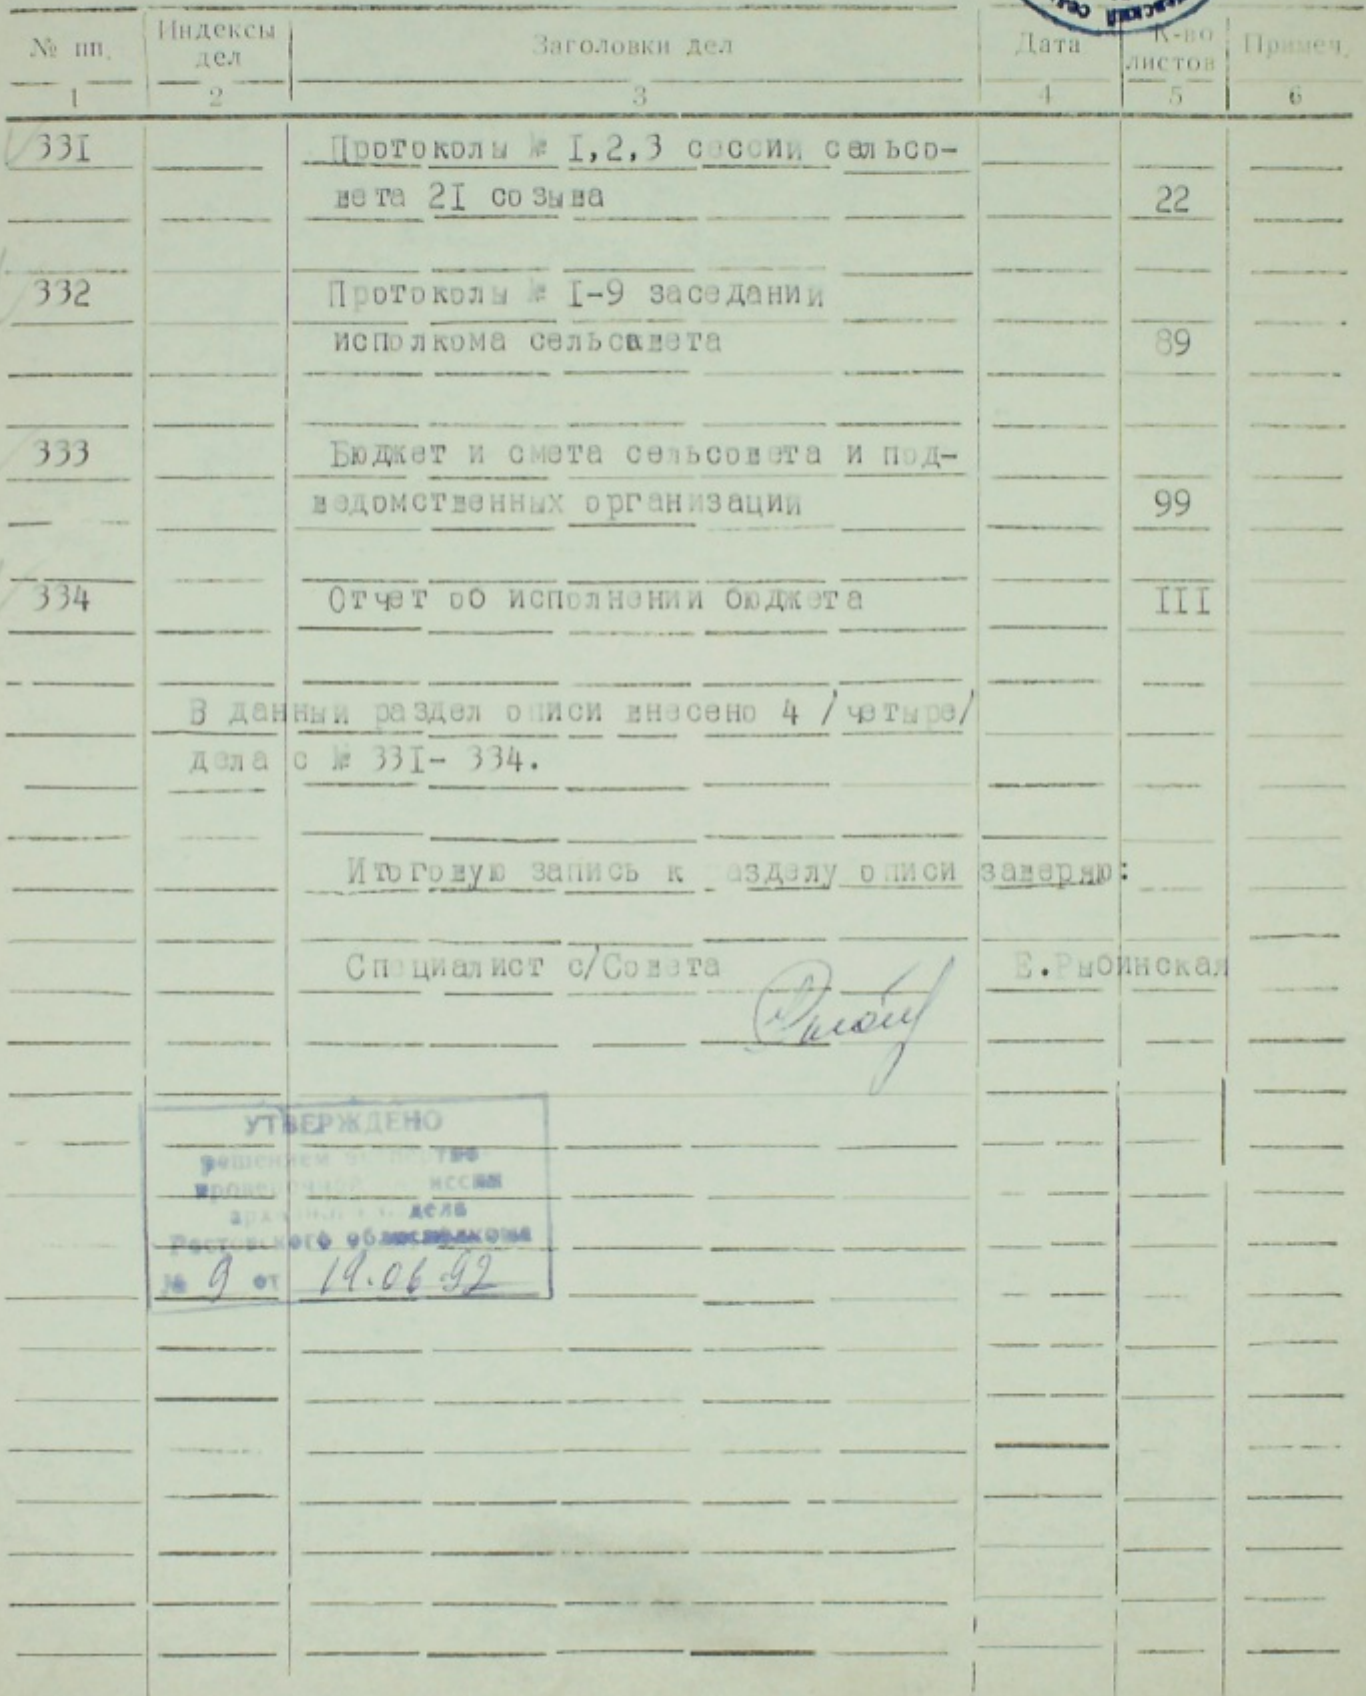 № пп. Индексы дел Заголовки дел Дата К-во листов Примеч.
1 2 3 4 5 6
331 Протоколы № I,2,3 сессии сельсо-
вета 2I созыва 22
332 Протоколы № I-9 заседании
исполкома сельсавета 89
333 Бюджет и смета сельсовета и под-
ведомственных организации 99
334 Отчет об исполнении бюджета III
В данный раздел описи внесено 4 /четыре/
дела с № 33I- 334.
Итоговую запись к разделу описи заверяю:
Специалист с/Совета Е.Рыбинская
УТВЕРЖДЕНО
решением экспертно-
проверочной комиссии
архивного отдела
Ростовского облисполкома
№ 9 от 19.06.92